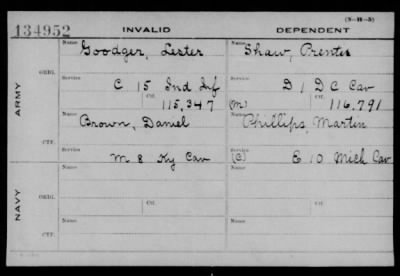 (3-H-5)
134952 INVALID DEPENDENT
Name Name
Goodger, Lester Shaw, Prentis
ARMY
ORIG. Service Service
C 15 Ind Inf D 1 D C Cav
Ctf. Ctf.
115,347 (M) 116,791
Name Name
Brown, Daniel Phillips, Martin
CTF. Service Service
M 8 Ky Cav (C) E 10 Mich Cav
NAVY
Name Name
ORIG. Service Service
Ctf. Ctf.
Name Name
CTF. Service Service